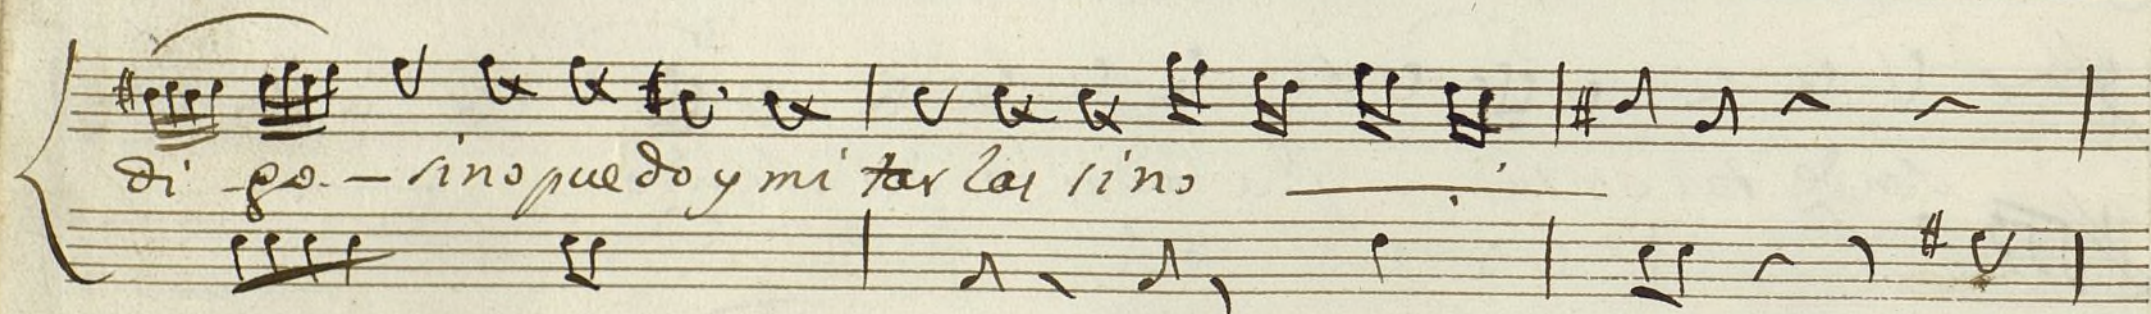 di - go - sino puedo y mi tar las sino